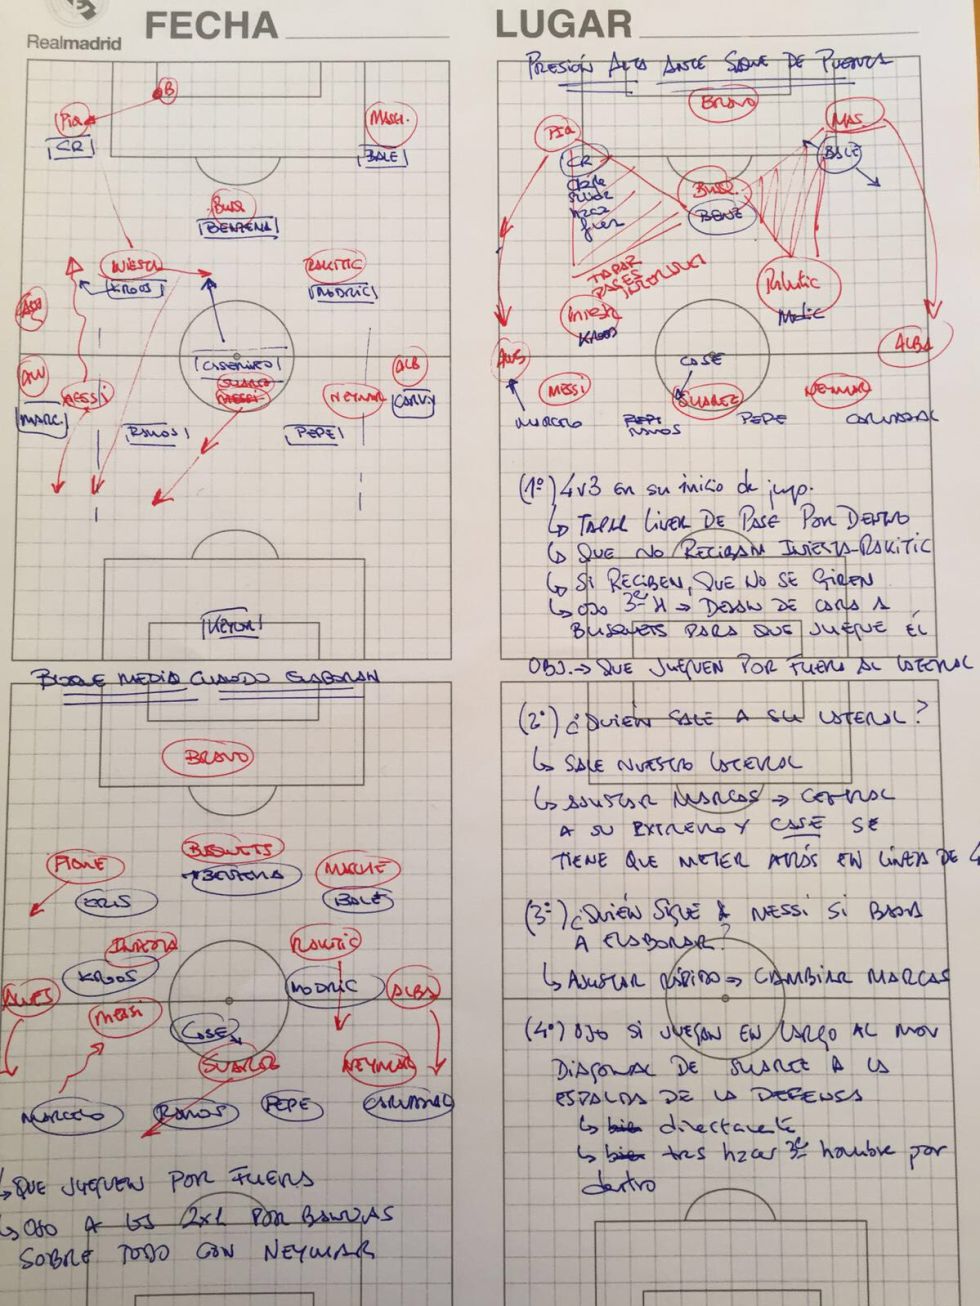 Realmadrid
FECHA
LUGAR
B
Pia
CR
MASCH.
BALE
BUSQ
BENZEMA
INIESTA
KROOS
RAKITIC
MODRIC
CASEMIRO
SUAREZ
MESSI
MESSI
NEYMAR
ALB
CARV
MARC
RAMOS
PEPE
KEYLOR
PRESIÓN ALTA ANTE SAQUE DE PUERTA
BRAVO
PIQ
MAS.
CR
BALE
BUSQ.
BENZ
TAPAR
PASES
INTERIORES
INIESTA
KROOS
Rakitic
Modric
ALVS
ALBA
CASE
MESSI
SUAREZ
NEYMAR
MARCELO
PEPE
RAMOS
PEPE
CARVAJAL
(1º) 4v3 en su inicio de jug.
↳ TAPAR LINEAS DE PASE POR DENTRO
↳ QUE NO RECIBAN INIESTA-RAKITIC
↳ SI RECIBEN, QUE NO SE GIREN
↳ OJO 3er H → DEJAN DE CARA A
BUSQUETS PARA QUE JUEGUE ÉL
OBJ. → QUE JUEGUEN POR FUERA AL LATERAL
BLOQUE MEDIO CUANDO ELABORAN
BRAVO
PIQUE
BUSQUETS
BENZEMA
MASCHE
CRIS
BALE
INIESTA
KROOS
RAKITIC
MODRIC
ALVES
ALBA
MESSI
CASE
SUAREZ
NEYMAR
MARCELO
RAMOS
PEPE
CARVAJAL
↳ QUE JUEGUEN POR FUERA
↳ OJO A LOS 2x1 POR BANDAS
SOBRE TODO CON NEYMAR
(2º) ¿QUIÉN SALE A SU LATERAL?
↳ SALE NUESTRO LATERAL
↳ AJUSTAR MARCAS → CENTRAL
A SU EXTREMO Y CASE SE
TIENE QUE METER ATRÁS EN LÍNEA DE 4
(3º) ¿QUIÉN SIGUE A MESSI SI BAJA
A ELABORAR?
↳ AJUSTAR RÁPIDO → CAMBIAR MARCAS
(4º) OJO SI JUEGAN EN LARGO AL MOV
DIAGONAL DE SUAREZ A LA
ESPALDA DE LA DEFENSA
↳ bien directamente
↳ bien tras hacer 3er hombre por
dentro